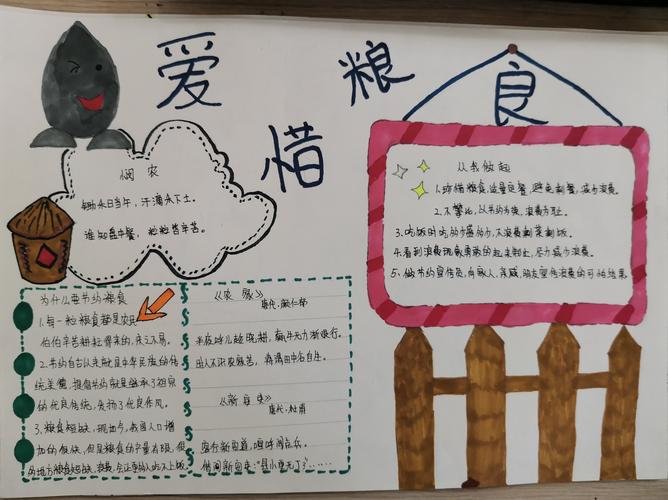 爱惜粮食
悯农
锄禾日当午，汗滴禾下土。
谁知盘中餐，粒粒皆辛苦。
为什么要节约粮食
1.每一粒粮食都是农民
伯伯辛苦耕耘得来的，来之不易。
2.节约自古以来就是中华民族的传
统美德，提倡节约就是继承了祖宗
的优良传统，发扬了优良作风。
3.粮食短缺，现如今，我国人口增
加的很快，但是粮食的产量有限，很
多地方粮食短缺，
《农家》
唐代·颜仁郁
半夜呼儿趁晓耕，羸牛无力渐艰行。
时人不识农家苦，将谓田中谷自生。
《新安吏》
唐代·杜甫
客行新安道，喧呼闻点兵。
借问新安吏："县小更无丁？"……
从我做起
1.珍惜粮食，适量定餐，避免剩餐，减少浪费。
2.不攀比，以节约为荣，浪费为耻。
3.吃饭时吃多少盛多少，不浪费剩菜剩饭。
4.看到浪费现象勇敢的起来制止，尽力减少浪费。
5.做节约宣传员，向家人、亲戚、朋友宣传浪费的可怕结果